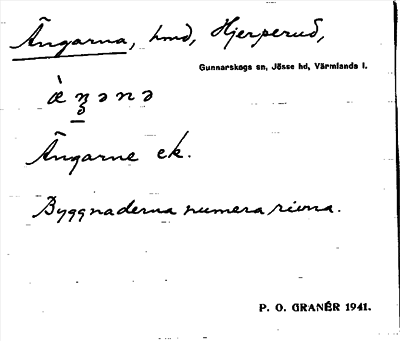 Ängarna, hmd, Hjerperud,
Gunnarskogs sn, Jösse hd, Värmlands l.
Ängarne ek.
Byggnaderna numera rivna.
P. O. GRANÉR 1941.